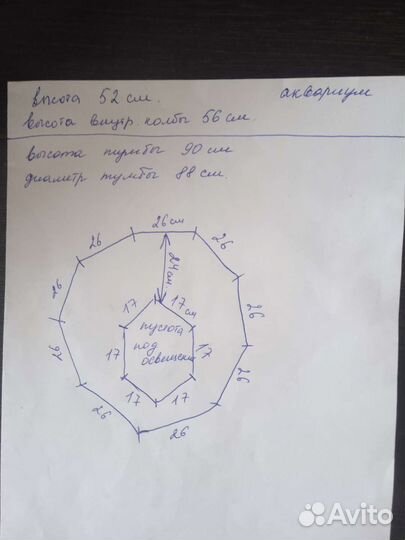 высота 52 см. аквариум
высота внутр. колбы 56 см.
высота тумбы 90 см
диаметр тумбы 88 см.
26 см
26
26
24 см
26
26
17
17 см
26
пустота
под
освещение
17
17
26
26
17
17
26
26
Avito